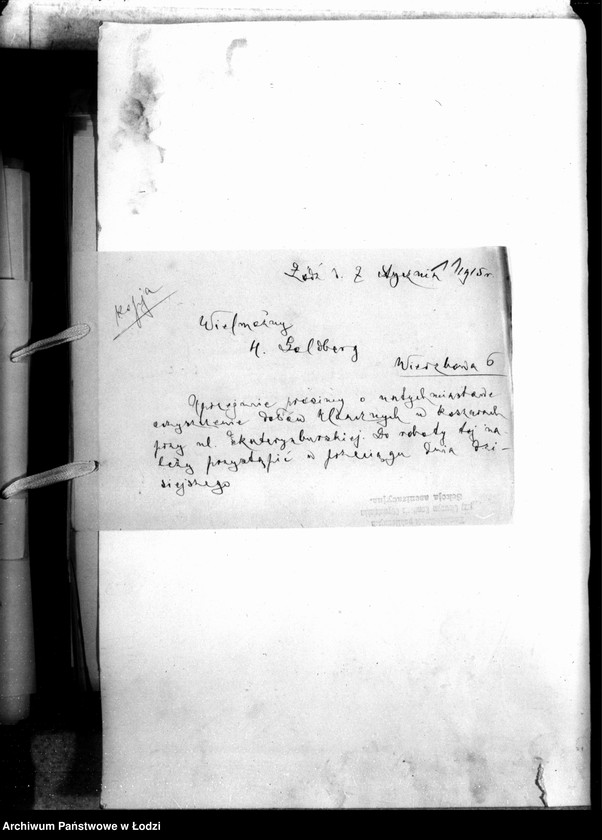 Łódź d. 7 stycznia 1915 r.
kopja
Wielmożny
H. Goldberg
Widzewska 6
Uprzejmie prosimy o natychmiastowe
oczyszczenie dołów kloacznych w koszarach
przy ul. Ekaterynburskiej. Do roboty tej na
leży przystąpić w przeciągu dnia dzi-
siejszego
Sekcja asenizacyjna.
Archiwum Państwowe w Łodzi